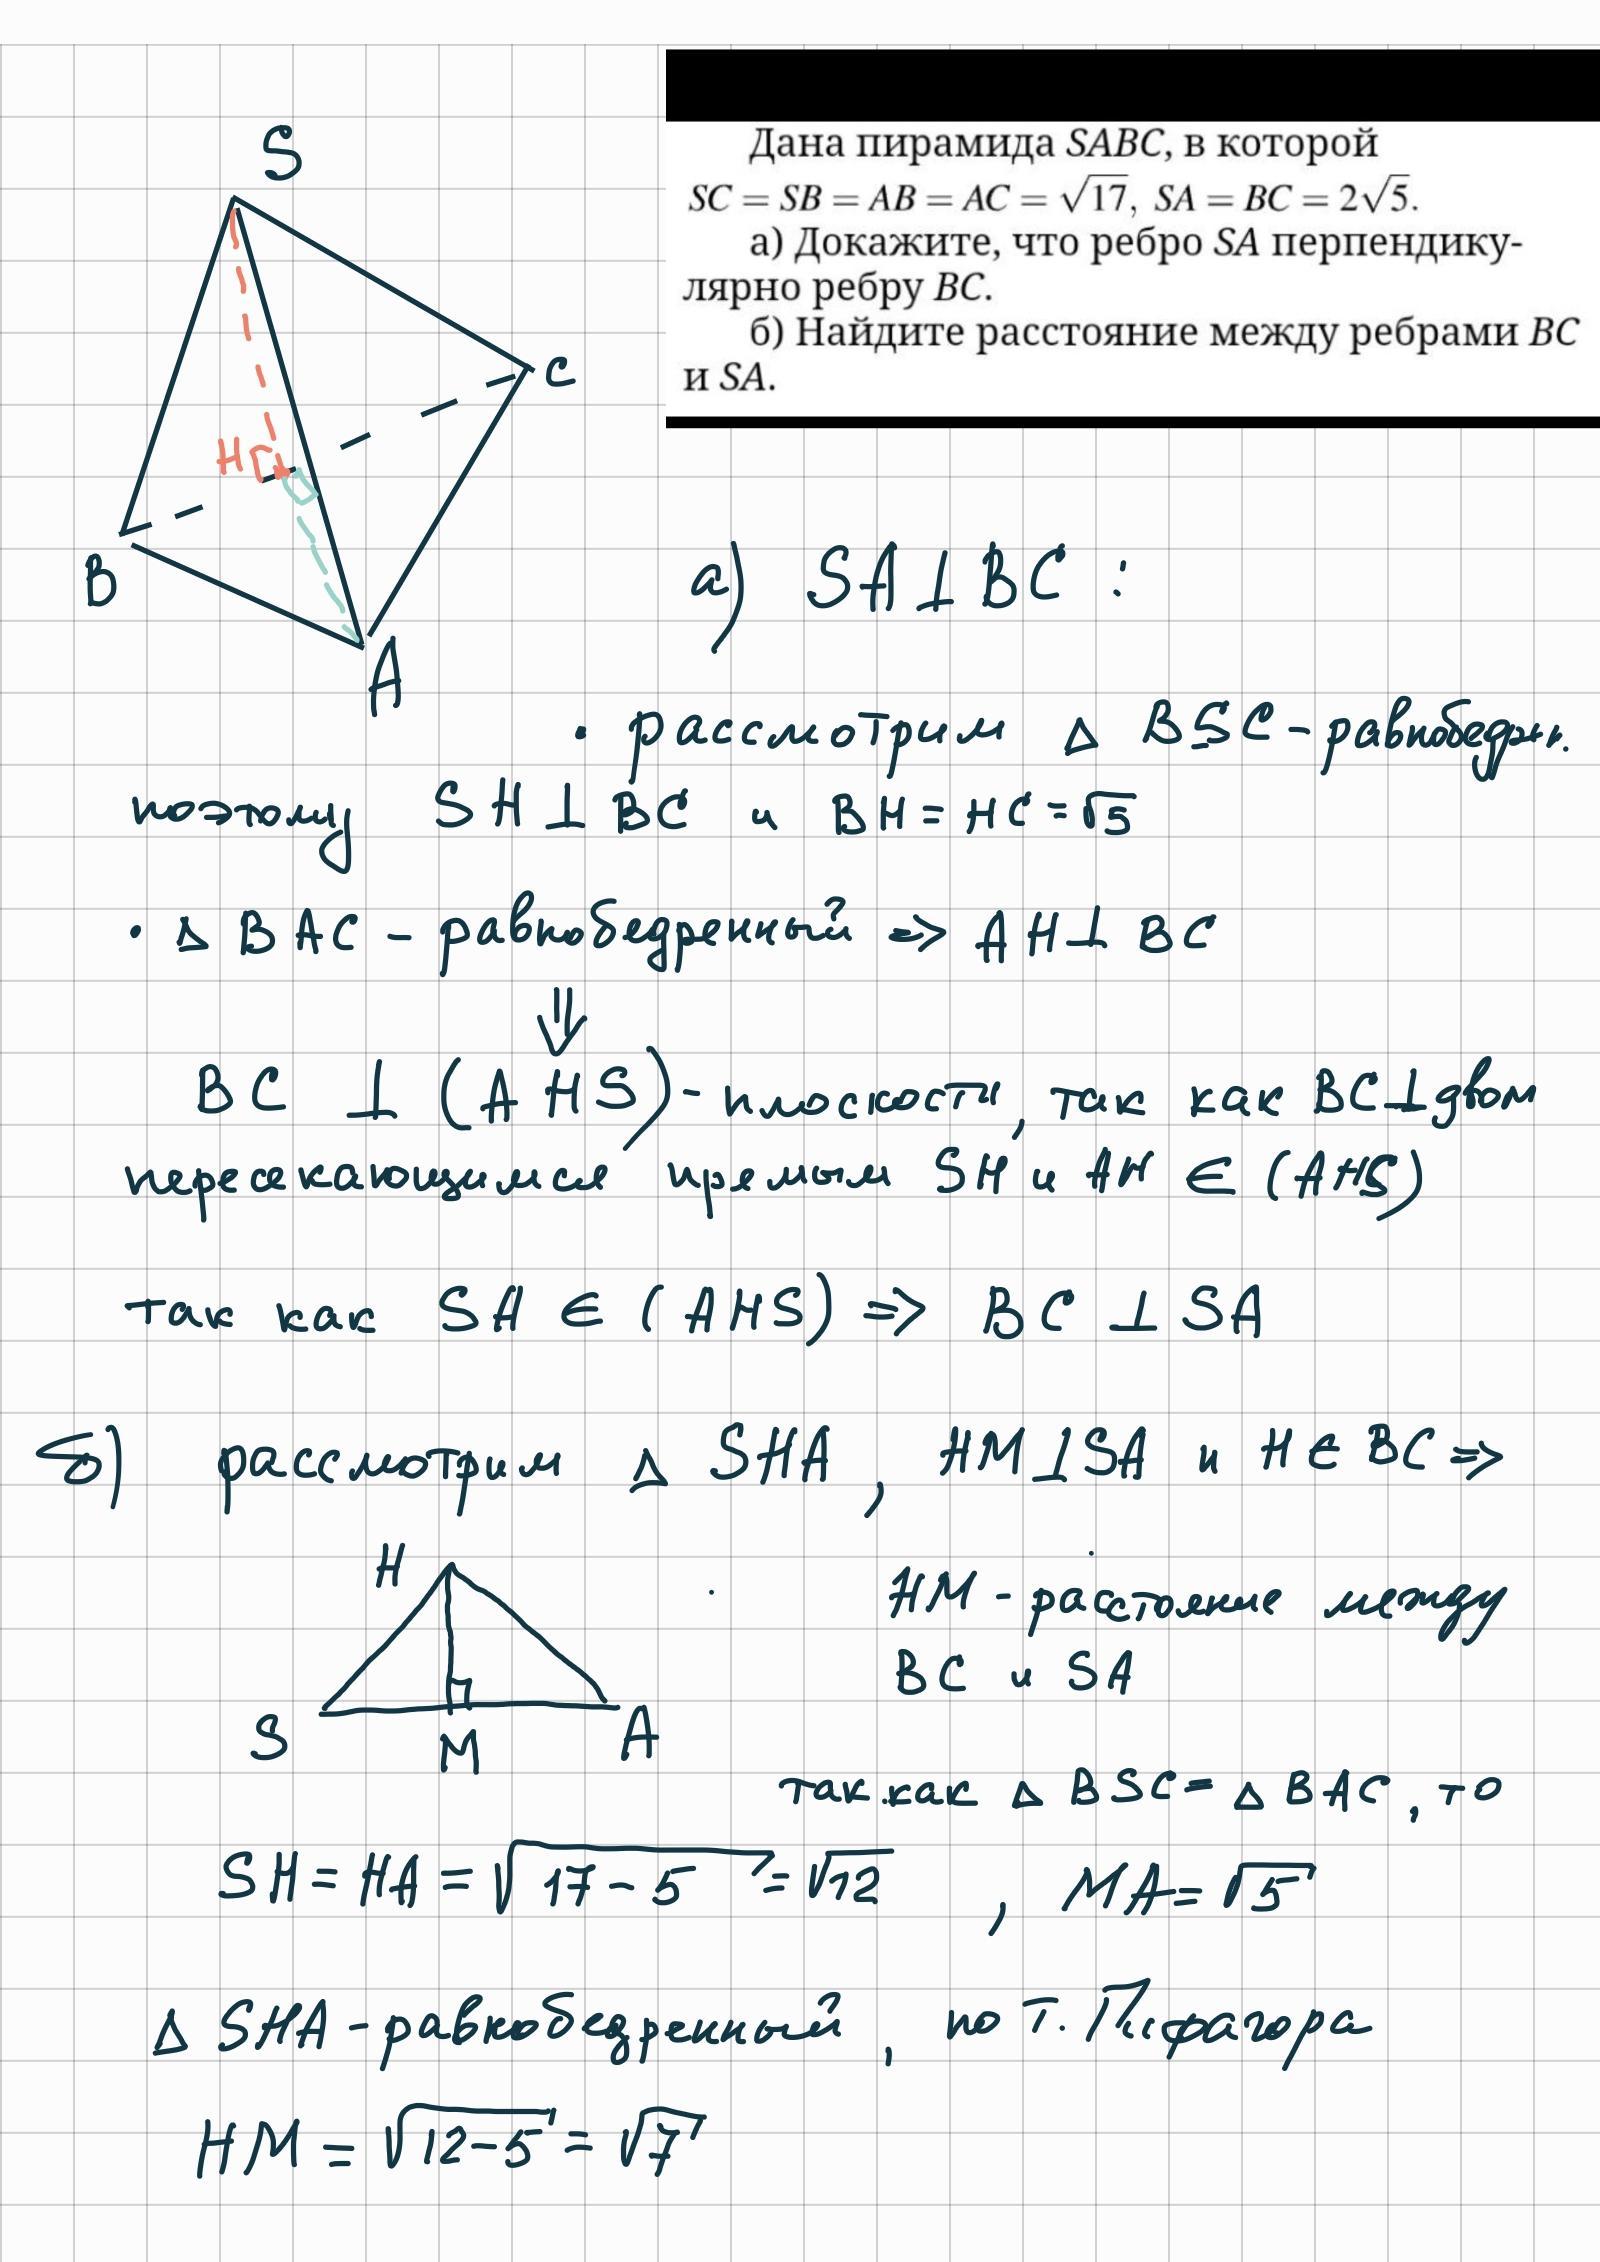 Дана пирамида SABC, в которой
SC = SB = AB = AC = √17, SA = BC = 2√5.
а) Докажите, что ребро SA перпендику-
лярно ребру BC.
б) Найдите расстояние между ребрами BC
и SA.
S
C
H
B
A
а) SA⊥BC :
• рассмотрим Δ BSC - равнобедрн.
поэтому SH⊥BC и BH = HC = √5
• Δ BAC - равнобедренный => AH⊥BC
⇓
BC ⊥ (AHS) - плоскости, так как BC⊥двум
пересекающимся прямым SH и AH ∈ (AHS)
так как SA ∈ (AHS) => BC ⊥ SA
б) рассмотрим Δ SHA, HM⊥SA и H∈BC =>
H
HM - расстояние между
BC и SA
S
M
A
так как Δ BSC = Δ BAC, то
SH = HA = √17-5 = √12 , MA = √5
Δ SHA - равнобедренный, по т. Пифагора
HM = √12-5 = √7